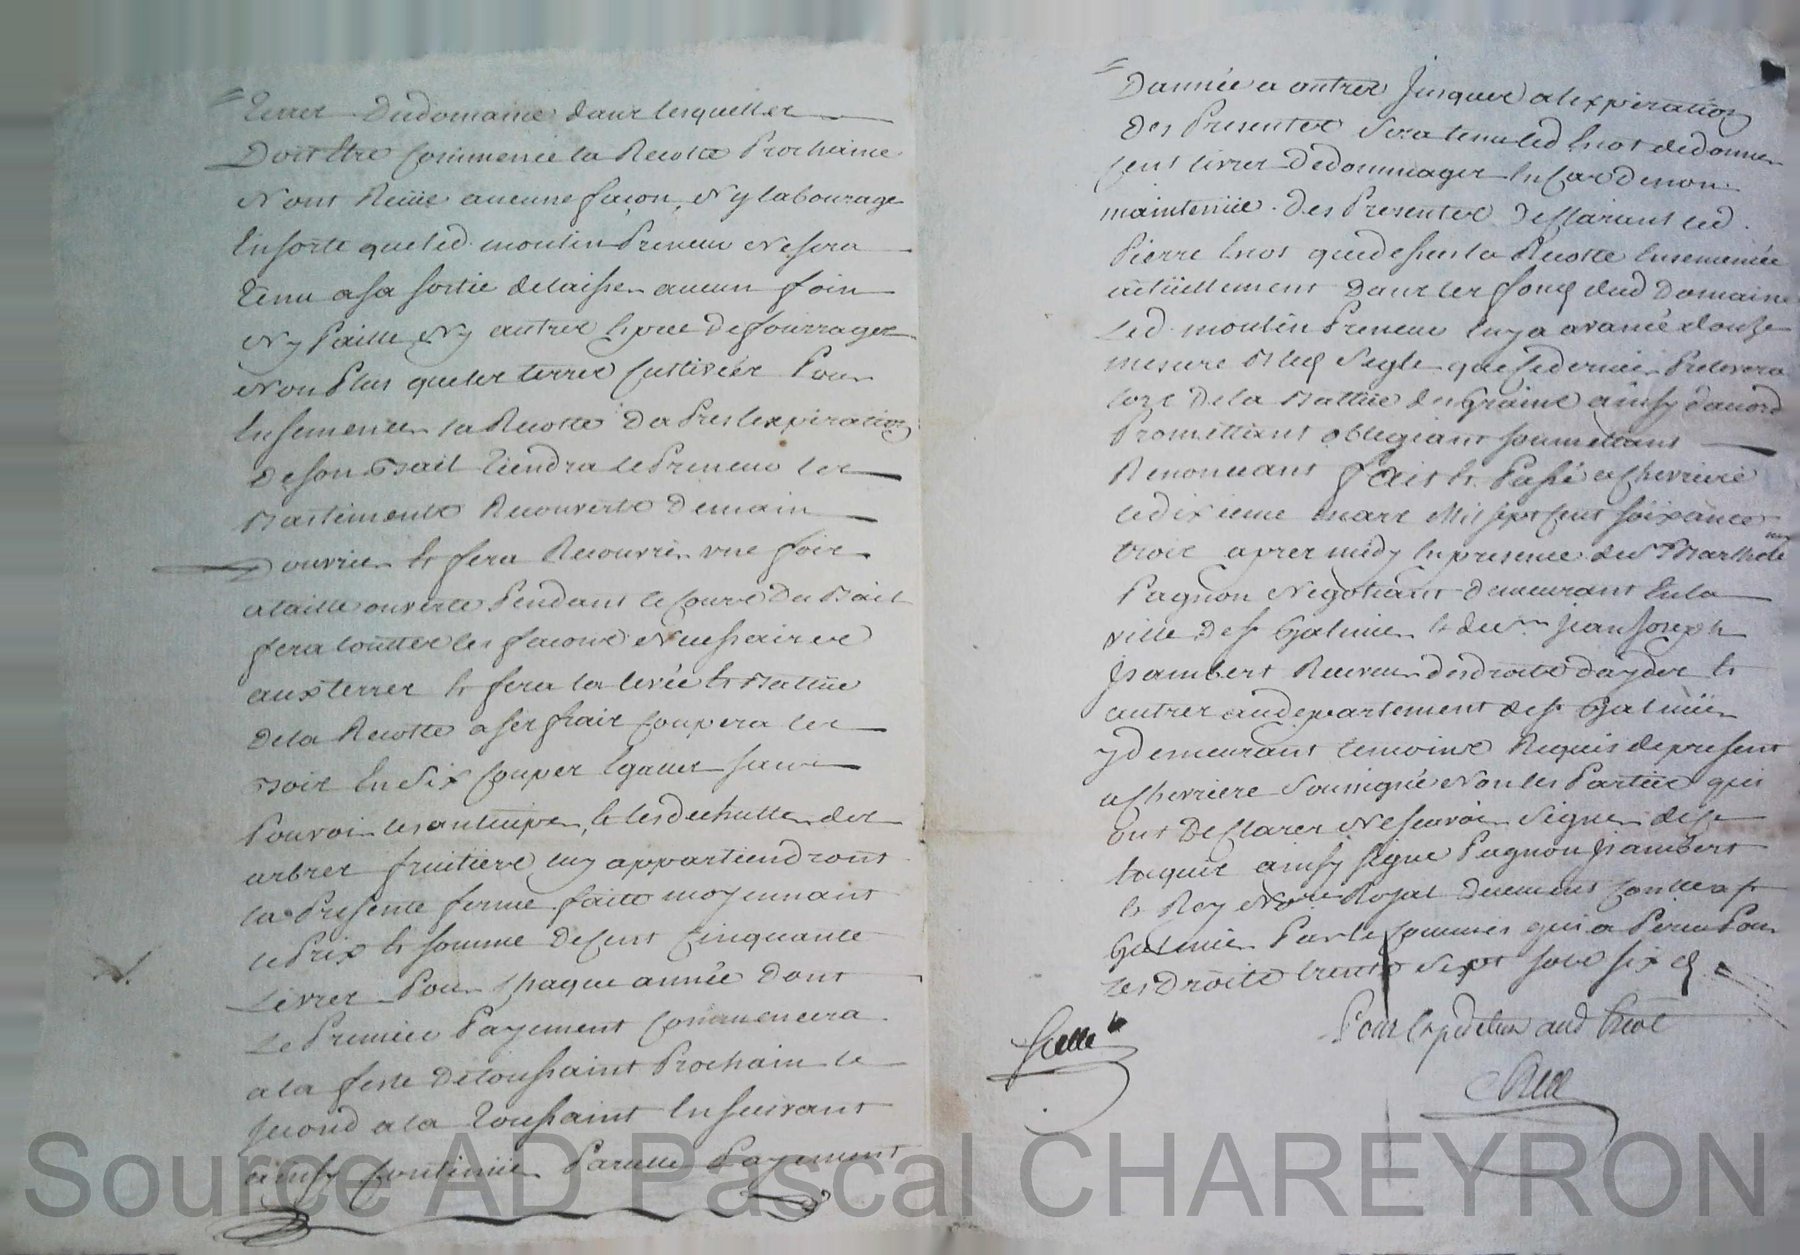 terres dudomaine dans lesquelles
Doit Etre Commencé la Recolte Prochaine
Nont Reçüe aucune façon, Ny labourage
Ensorte queled. moulin Preneur Nesera
tenu asa sortie delaisser aucun foin
Ny Paille Ny autres Espece Defourrages
Non Plus queles terres Cultivées Pour
Ensemencer la Recolte D'a Pres lexpiration
Deson Bail tiendra lePreneur les
Bastiments Recouverts Demain
Douvrier Et fera Recouvrir une fois
ataille ouverte Pendant le Cours Du Bail
fera touttes les façons Necessaires
aux terres Et fera la levée Et Battüe
Dela Recolte asesfrais Coupera les
Bois En Six Coupes Egalles sans
Pouvoir lesanticiper, Et les des
arbres fruitiers luy appartiendront
la Presente ferme faitte moyennant
le Prix Et somme DeCent Cinquante
Livres Pour Chaque année Dont
Le Premier Payement Commencera
ala feste Detoussaint Prochain le
second ala toussaint Ensuivant
ainsy Continüer Pareille Payement
Dannée a autres Jusques alexpiration
Des Presentes Sera tenu led Enot dedonner
Cent livres Dedommages En Cas Denon
maintenüe Des Presentes Desclarant led.
Pierre Enot quedessus la Recolte Ensemencée
actüellement Dans les fonds dud Domaine
Led. moulin Preneur luy a avancé douze
mesure Bled Segle queCedernier Prelevera
lors Dela Battüe des Grains ainsy daccord
Promettant obligeant soumettant
Renonceant fait Et Passé aChevriere
ledixieme mars Mil sept Cent soixante
trois apres midy En presence de sr Barthele
my
Pagnon Negotiant Demeurant Enla
ville Dest Galmier Et de sr jean Joseph
jsambert Receveur desdroits daydes Et
autres audepartement dest Galmier
y demeurant temoins Requis depresent
aChevriere Soussignés Nonles Parties qui
ont Desclarer Nesçavoir Signer de ce
Enquis ainsy signé Pagnon jsambert
Et Rey Nore Royal Deuement Controllé a st
Galmier Par le Commis qui a Perçu Pour
LesDroits trente Sept sols six d
Scellé
Pour Expedition aud Enot
Rey
Source AD Pascal CHAREYRON